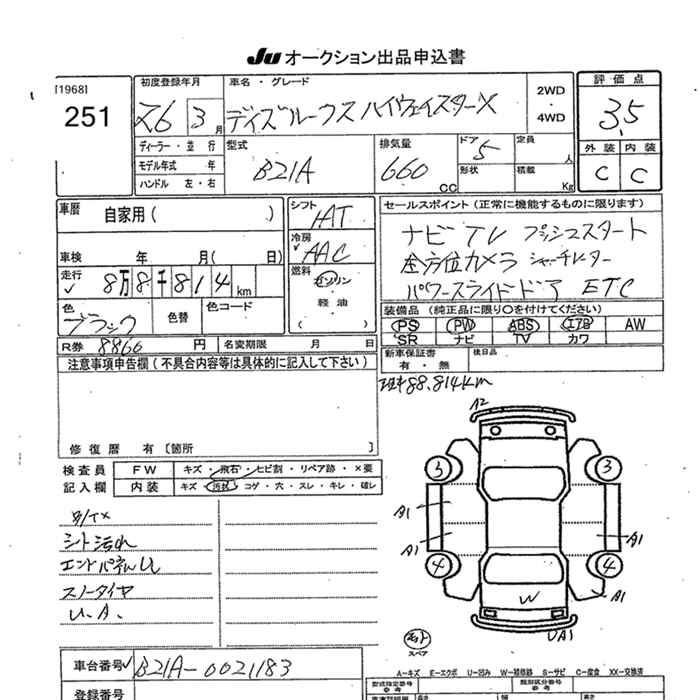 Ju オークション出品申込書
[1968]
251
初度登録年月
26 3月
車名・グレード
デイズルークス ハイウェイスターX
2WD
・
4WD
評価点
3.5
外装 内装
C C
ディーラー・並行
モデル年式 年
ハンドル 左・右
型式
B21A
排気量
660 CC
ドア
5
形状
定員
人
積載
Kg
車歴 自家用( )
車検 年 月( 日)
走行 8万8千814km
色
ブラック
色替
色コード
R券 8860 円
名変期限 月 日
シフト
IAT
冷房
AAC
燃料
ガソリン
軽油
( )
セールスポイント(正常に機能するものに限ります)
ナビ TV プッシュスタート
全方位カメラ
パワースライドドア ETC
装備品(純正品に限り○を付けてください)
PS PW ABS エアB AW
SR ナビ TV カワ
新車保証書
有・無
後日品
注意事項申告欄(不具合内容等は具体的に記入して下さい)
修復歴 有〔箇所 〕
88.814km
検査員
記入欄
FW キズ・飛石・ヒビ割・リペア跡・×要
内装 キズ・汚れ・コゲ・穴・スレ・キレ・破レ
シト汚れ
エンドパネルU
スノータイヤ
U.A.
A2
5 3
A1
A1 A1
4 4
A1
W
UA1
スペア
A-キズ E-エクボ U-凹み W-補修跡 S-サビ C-腐食 XX-交換済
車台番号 B21A-0021183
登録番号
型式指定番号
参考
類別区分番号
参考
長さ
幅
高さ